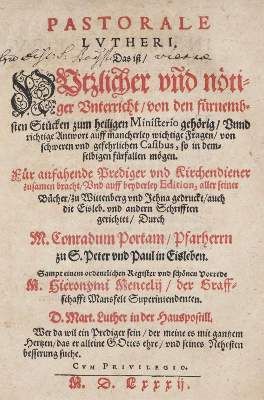 PASTORALE
LVTHERI,
Das ist/
NVtzlicher vnd nöti-
ger Vnterricht/ von den fürnemb-
sten Stücken zum heiligen Ministerio gehörig/ Vnnd
richtige Antwort auff mancherley wichtige Fragen/ von
schweren vnd gefehrlichen Casibus, so in dem-
selbigen fürfallen mögen.
Für anfahende Prediger vnd Kirchendiener
zusamen bracht/ Vnd auff beyderley Edition, aller seiner
Bücher/ zu Wittenberg vnd Jehna gedruckt/ auch
die Eisleb. vnd andern Schrifften
gerichtet/ Durch
M. Conradum Portam/ Pfarherrn
zu S. Peter vnd Paul in Eisleben.
Sampt einem ordenelichen Register vnd schönen Vorrede
M. Hieronymi Mencelij/ der Graff-
schafft Mansfelt Superintendenten.
D. Mart. Luther in der Hauspostill.
Wer da wil ein Prediger sein/ der meine es mit gantzem
Hertzen/ das er alleine GOttes ehre/ vnd seines Nehesten
besserung suche.
CVM PRIVILEGIO.
M. D. Lxxxij.